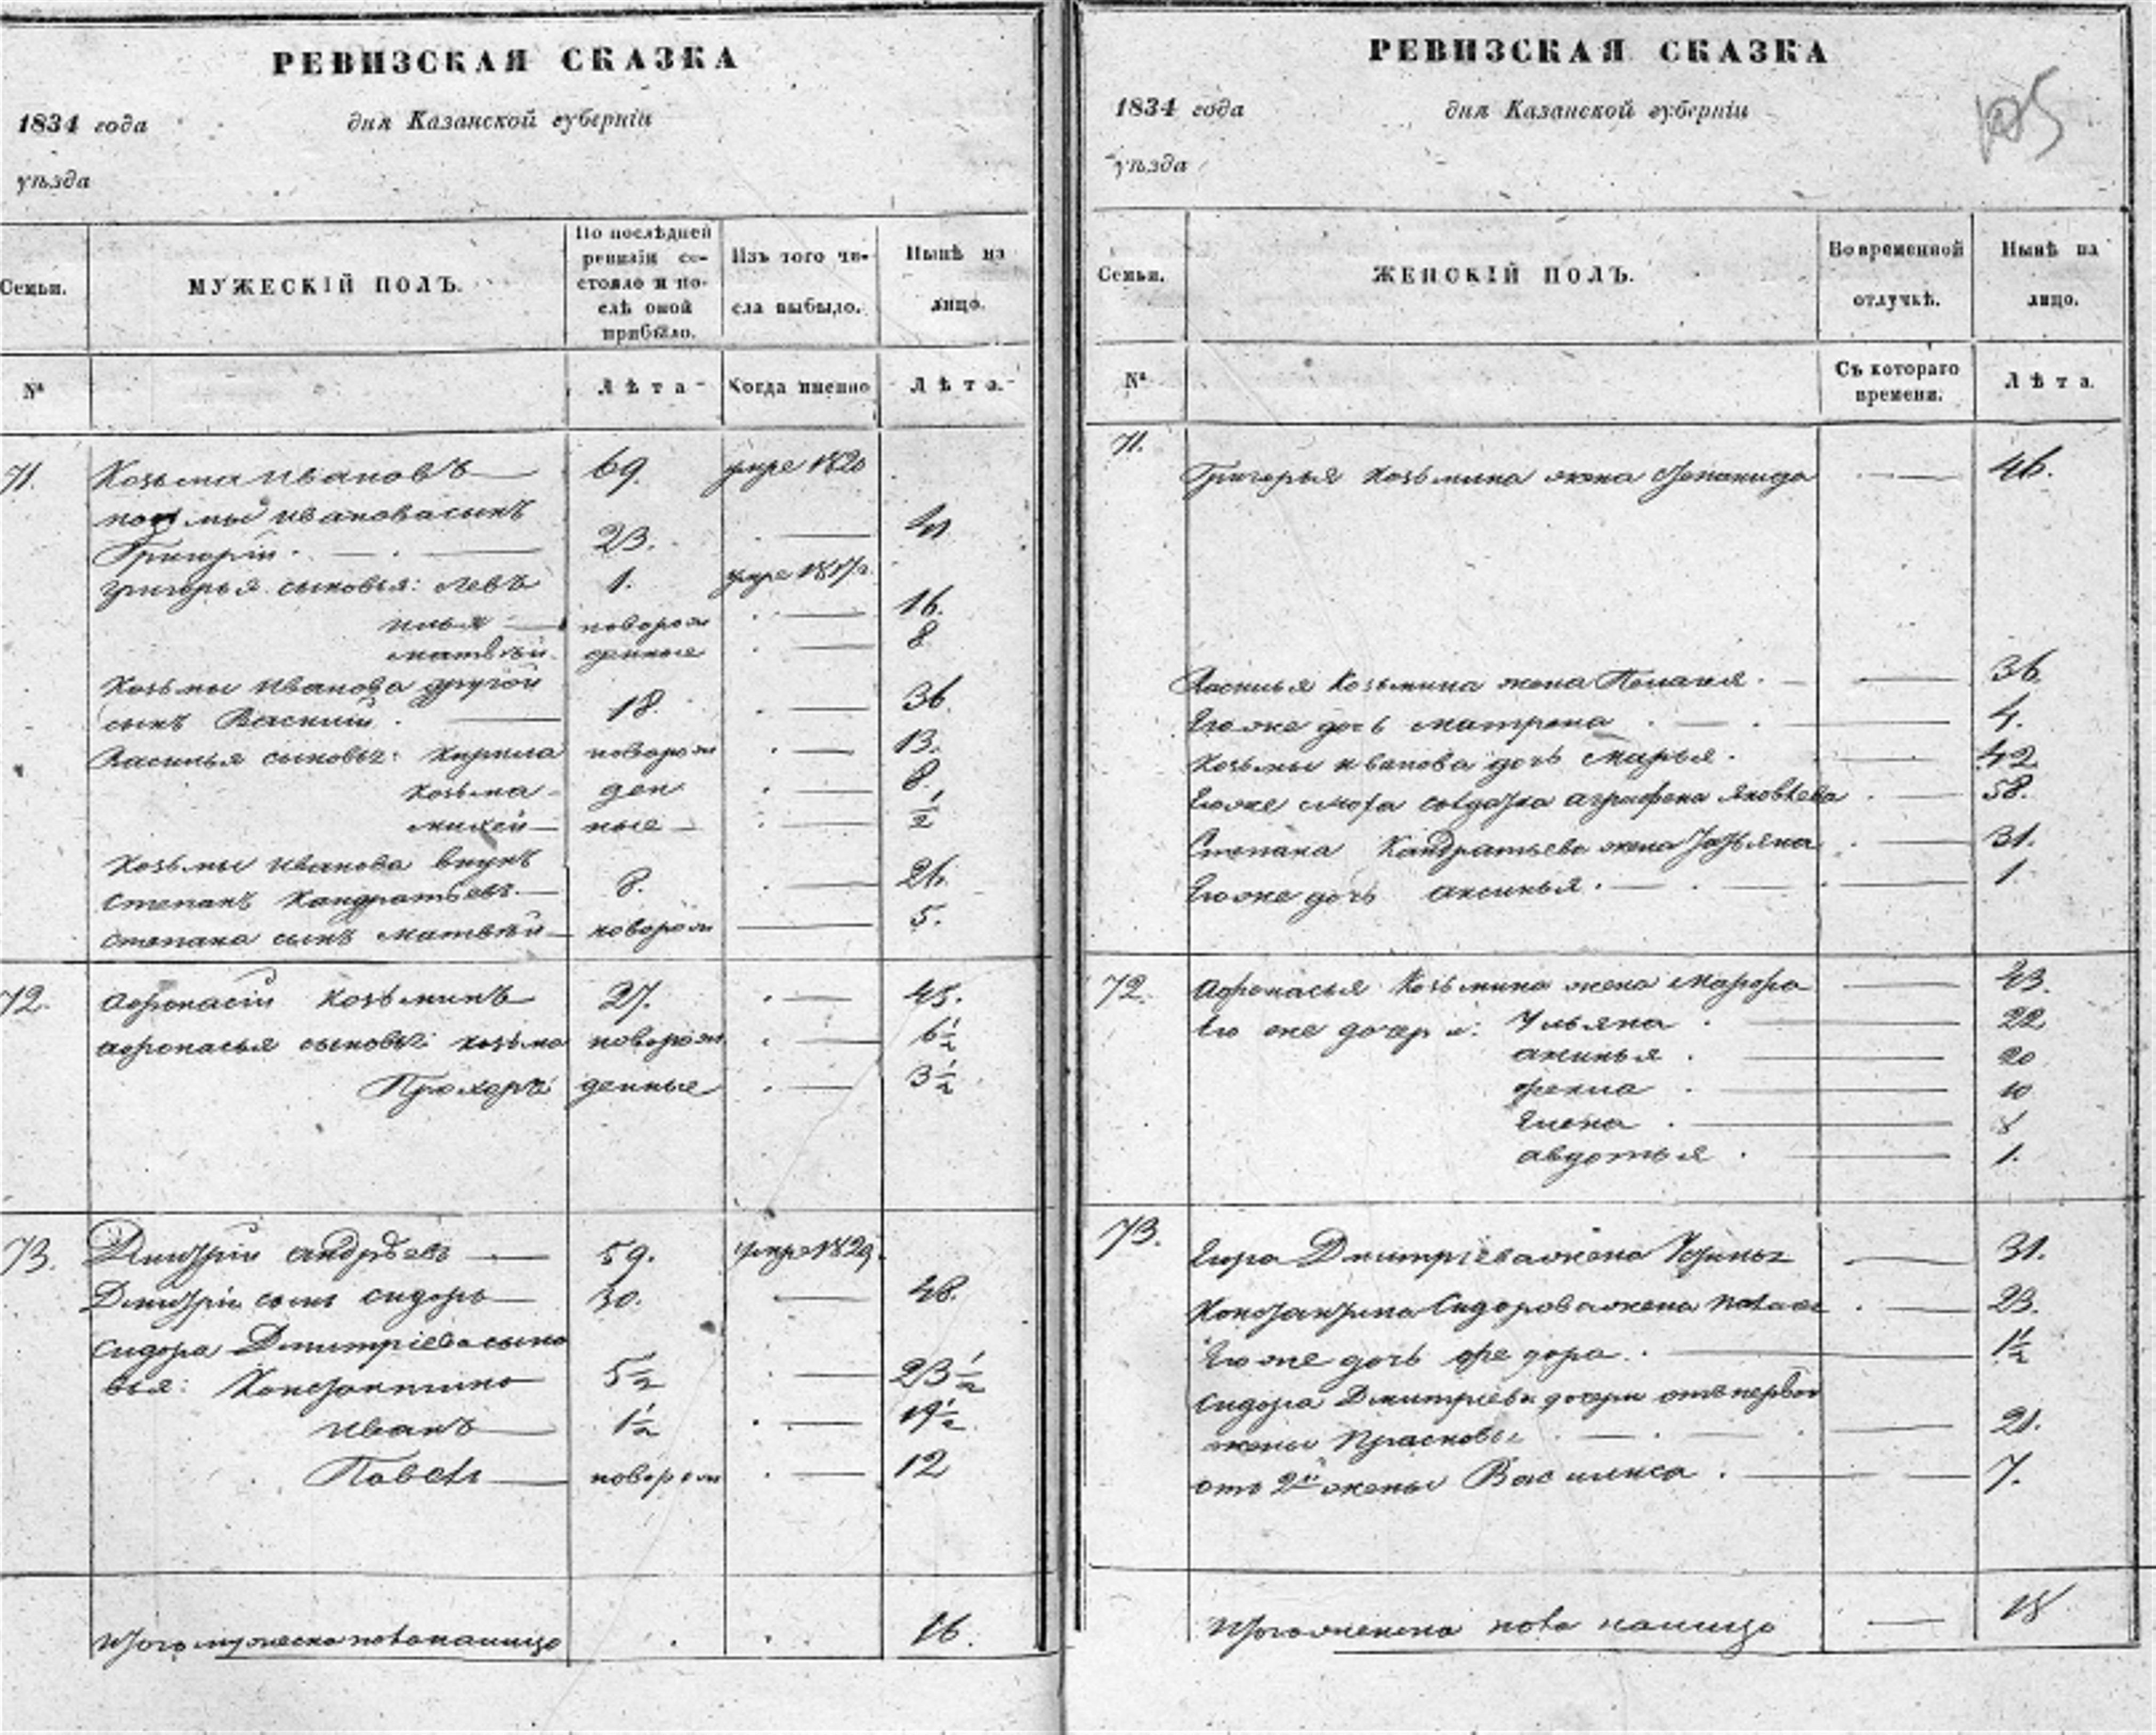 РЕВИЗСКАЯ СКАЗКА
1834 года дня Казанской губерніи
уѣзда
Семьи.
МУЖЕСКІЙ ПОЛЪ.
По послѣдней
ревизіи со-
стояло и по-
слѣ оной
прибыло.
Изъ того чи-
сла выбыло.
Нынѣ на
лицо.
№
Лѣта
Когда именно
Лѣта.
71. Козьма Ивановъ 69. умре 1820
Козьмы Иванова сынъ
Григорій 23.
Григорья сыновья: Левъ 1. умре
Илья поворож 16.
Матвѣй денные 8
Козьмы Иванова другой
сынъ Василий 18. 36
Василья сыновья: Кирила новорож 13.
Козьма ден 8.
Михей ные ½
Козьмы Иванова внукъ
Степанъ Кандратьевъ 8. 26.
Степана сынъ Матвѣй новорож 5.
72. Афонасій Козьминъ 27. 45.
Афонасья сыновья: Козьма новорож 6½
Прохоръ денные 3½
73. Дмитрій Андрѣевъ 59. умре 1829.
Дмитрія сынъ Сидоръ 30. 48.
Сидора Дмитріева сыно
вья: Константинъ 5½ 23½
Иванъ 1½ 19½
Павелъ новорож 12
Итого мужеска пола на лицо 16.
РЕВИЗСКАЯ СКАЗКА
1834 года дня Казанской губерніи
уѣзда
Семьи.
ЖЕНСКІЙ ПОЛЪ.
Во временной
отлучкѣ.
Нынѣ на
лицо.
№
Съ котораго
времени.
Лѣта.
71.
Григорья Козьмина жена 46.
Василья Козьмина жена Пелагея 36.
Его же дочь Матрена 4.
Козьмы Иванова дочь Марья 42
Его же солдатка Аграфена Яковлева 58.
Степана Кандратьева жена Татьяна 31.
Его же дочь Аксинья 1.
72. Афонасья Козьмина жена Марфа 43.
Его же дочери: Ульяна 22
Акинья 20
Фекла 10
Елена 8
Авдотья 1.
73.
Сидора Дмитріева жена 31.
Константина Сидорова жена 23.
Его же дочь Федора 1½
Сидора Дмитріева дочери отъ первой
жены Прасковья 21.
отъ 2й жены Василиса 7.
Итого женска пола на лицо 18